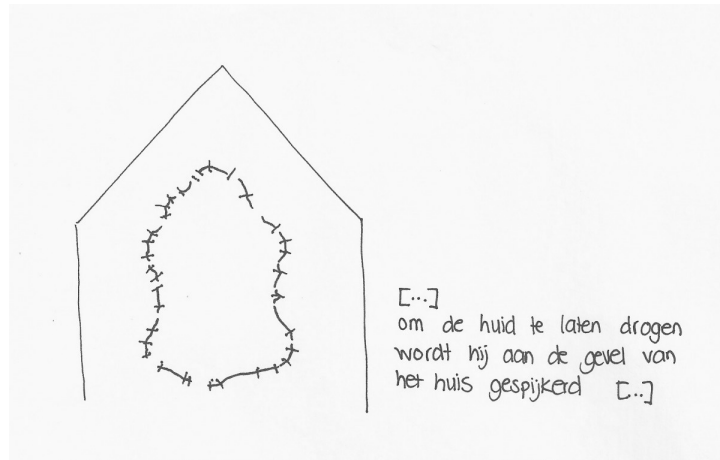 [...]
om de huid te laten drogen
wordt hij aan de gevel van
het huis gespijkerd [...]